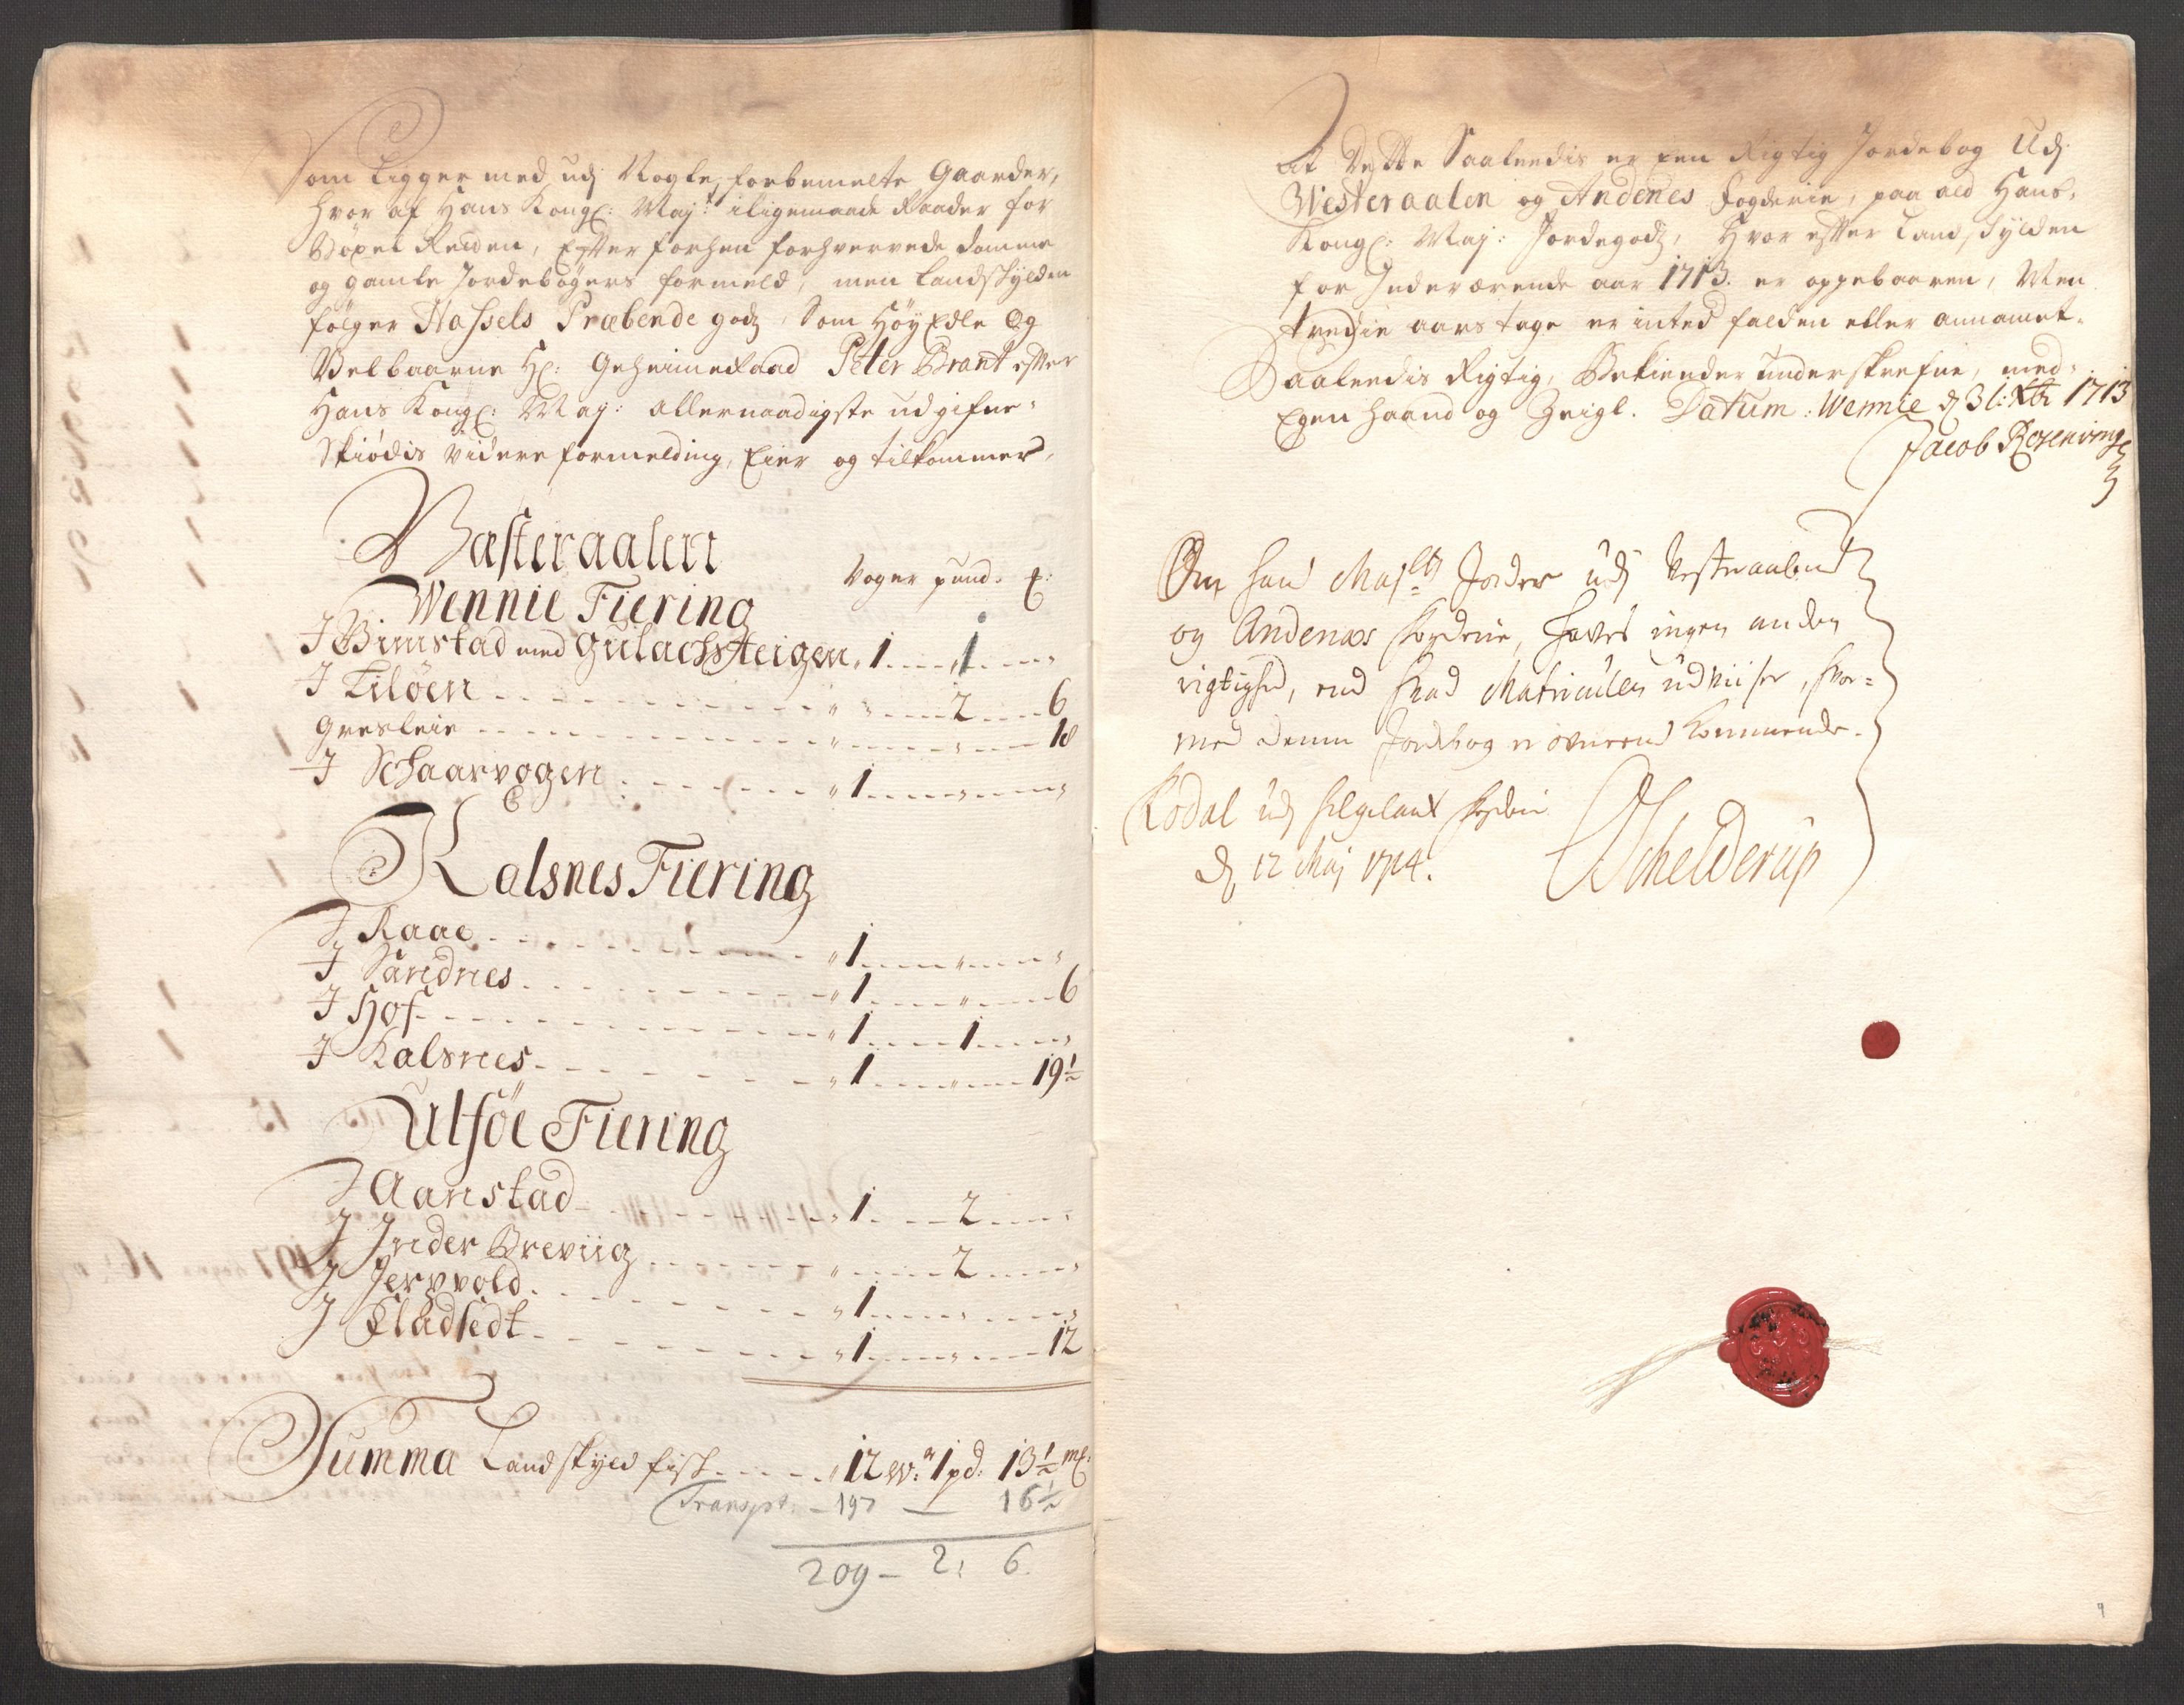 Som Ligger med udj Nogle forbemelte Gaarder,
hvor af Hans Kongl: Maj:t iligemaade Raader for
Böxel Reeden, Efter forhen forhvervede domme
og gamle Jordebögers formeld, men Landskylden
fölger Hassels Præbende godz, Som Höy Edle Og
Velbaarne Hr: Geheimeraad Peter Brant efter
Hans Kongl: Maj: allernaadigste udgifne
Skiödis videre formelding, Eier og tilkommer,
Væsteraalen
Voger pund: ℔:
Wennie Fiering
J Bimstad med Gulachsteigen 1 1 "
J Tilöen " 2 6
Gresleie " " 18
J Schaarvogen 1 " "
Kalsnes Fiering
J Raae 1 " "
J Sandnes 1 " 6
J Hof 1 1 "
J Kalsnes 1 " 19½
Ulföe Fiering
J Aanstad 1 2 "
J Jnder Breviig " 2 "
J Jervvold 1 " "
J Fladsedt 1 " 12
Summa Landskyld fisk 12 w: 1 pd: 13½ mk:
Transpt: 197 — 16½
209 – 2: 6.
At Dette Saaledis er een Rigtig Jordebog Udj
Westeraalen og Andenes fogderie, paa ald Hans
Kongl: Maj: Jordegodz, Hvor efter Landskylden
for Indeværende aar 1713. er oppebaaren, Men
tredie aars tage er inted falden eller annamet.
Saaledis Rigtig, Bekiender underskrefne, med
Egen haand og Zeigl. Datum: Wennie d 31: Xbr 1713
Jacob Rosenvinge
Om hans Maj:ts Jorder udj Vesteraalens
og Andenæs fogderie, haves ingen anden
rigtighed, end hvad Matriculen udviiser, hvor=
med denne Jordebog er overeens kommende.
Rodal udj Helgelands fogderie
d, 12 Maj 1714.
Schelderup